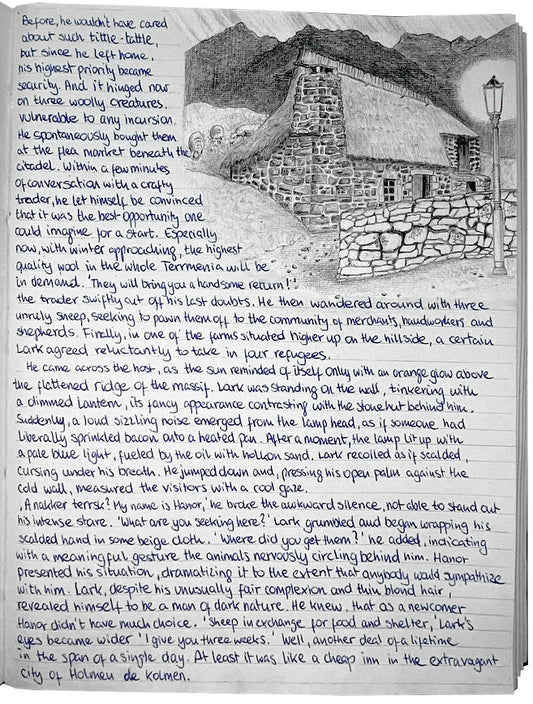 Before, he wouldn't have cared
about such tittle-tattle,
but since he left home,
his highest priority became
security. And it hinged now
on three woolly creatures,
vulnerable to any incursion.
He spontaneously bought them
at the flea market beneath the
citadel. Within a few minutes
of conversation with a crafty
trader, he let himself be convinced
that it was the best opportunity one
could imagine for a start. Especially
now, with winter approaching, the highest
quality wool in the whole Terrmenia will be
in demand. 'They will bring you a handsome return!',
the trader swiftly cut off his last doubts. He then wandered around with three
unruly sheep, seeking to pawn them off to the community of merchants, handworkers and
shepherds. Finally, in one of the farms situated higher up on the hillside, a certain
Lark agreed reluctantly to take in four refugees.
He came across the host, as the sun reminded of itself only with an orange glow above
the flattened ridge of the massif. Lark was standing on the wall, tinkering with
a dimmed lantern, its fancy appearance contrasting with the stone hut behind him.
Suddenly, a loud sizzling noise emerged from the lamp head, as if someone had
liberally sprinkled bacon onto a heated pan. After a moment, the lamp lit up with
a pale blue light, fueled by the oil with holkon sand. Lark recoiled as if scalded,
cursing under his breath. He jumped down and, pressing his open palm against the
cold wall, measured the visitors with a cool gaze.
'A nakker terrsk? My name is Hanor,' he broke the awkward silence, not able to stand out
his intense stare. 'What are you seeking here?' Lark grumbled and began wrapping his
scalded hand in some beige cloth. 'Where did you get them?' he added, indicating
with a meaningful gesture the animals nervously circling behind him. Hanor
presented his situation, dramatizing it to the extent that anybody would sympathize
with him. Lark, despite his unusually fair complexion and thin blond hair,
revealed himself to be a man of dark nature. He knew, that as a newcomer
Hanor didn't have much choice. 'Sheep in exchange for food and shelter,' Lark's
eyes became wider 'I give you three weeks.' Well, another deal of a lifetime
in the span of a single day. At least it was like a cheap inn in the extravagant
city of Holmeu de Kolmen.